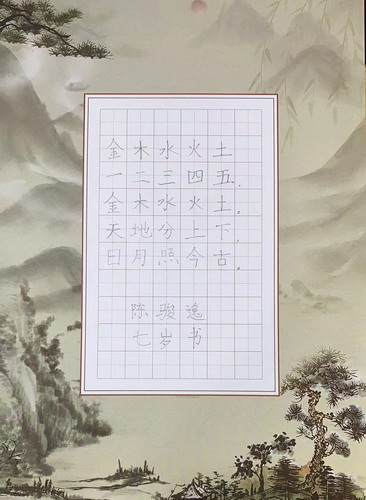 金木水火土
一二三四五，
金木水火土。
天地分上下，
日月照今古。
陈骏逸
七岁书